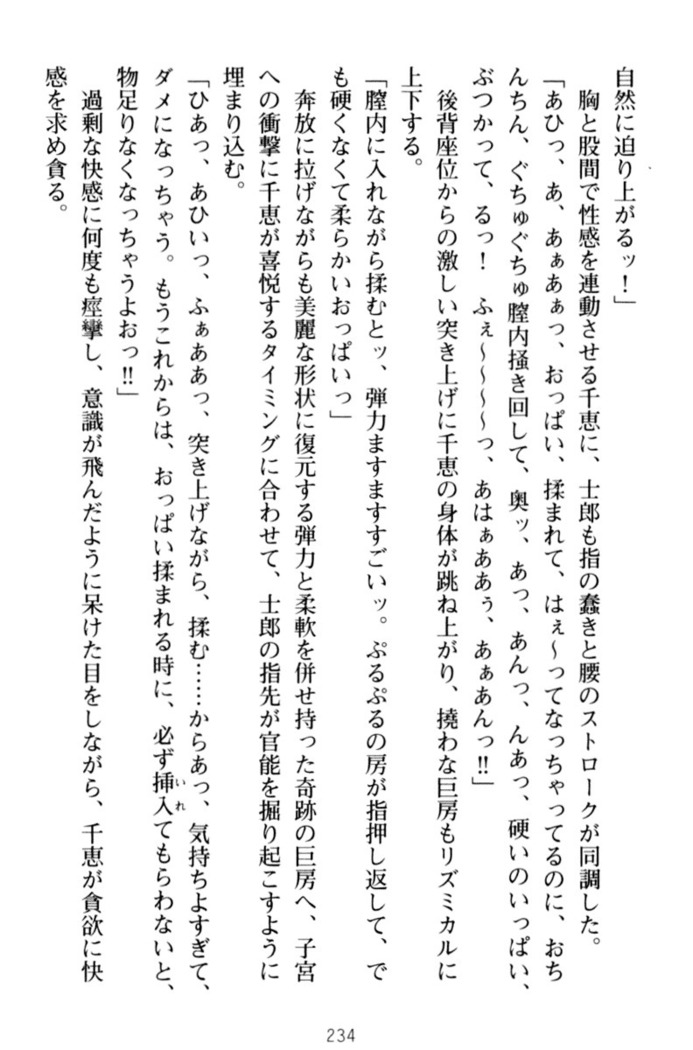 自然に迫り上がるッ！」
　胸と股間で性感を連動させる千恵に、士郎も指の蠢きと腰のストロークが同調した。
「あひっ、あ、あぁあぁっ、おっぱい、揉まれて、はぇ～ってなっちゃってるのに、おち
んちん、ぐちゅぐちゅ膣内掻き回して、奥ッ、あっ、あんっ、んあっ、硬いのいっぱい、
ぶつかって、るっ！　ふぇ～～～～っ、あはぁああぅ、あぁあんっ‼」
　後背座位からの激しい突き上げに千恵の身体が跳ね上がり、撓わな巨房もリズミカルに
上下する。
「膣内に入れながら揉むとッ、弾力ますますすごいッ。ぷるぷるの房が指押し返して、で
も硬くなくて柔らかいおっぱいっ」
　奔放に拉げながらも美麗な形状に復元する弾力と柔軟を併せ持った奇跡の巨房へ、子宮
への衝撃に千恵が喜悦するタイミングに合わせて、士郎の指先が官能を掘り起こすように
埋まり込む。
「ひあっ、あひいっ、ふぁああっ、突き上げながら、揉む……からあっ、気持ちよすぎて、
ダメになっちゃう。もうこれからは、おっぱい揉まれる時に、必ず挿入いれてもらわないと、
物足りなくなっちゃうよおっ‼」
　過剰な快感に何度も痙攣し、意識が飛んだように呆けた目をしながら、千恵が貪欲に快
感を求め貪る。
234